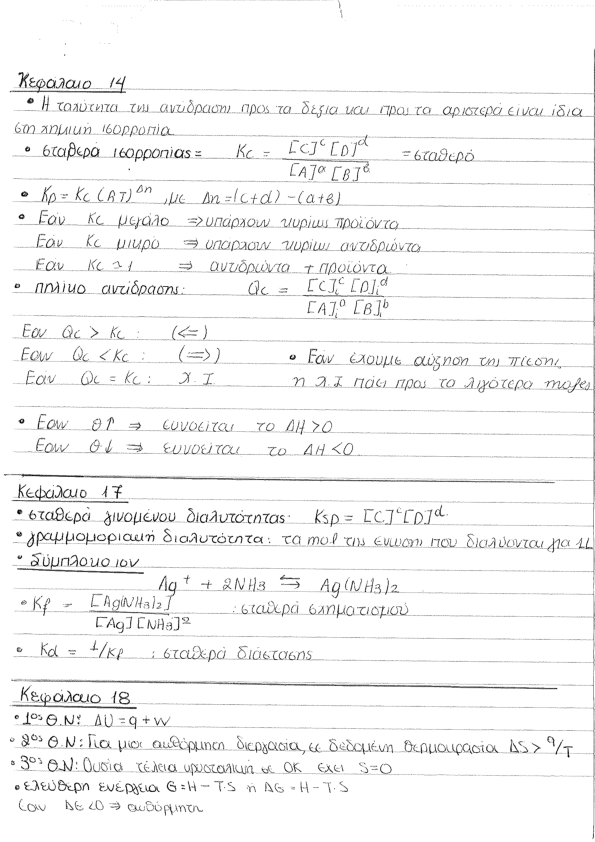 Κεφάλαιο 14
• Η ταχύτητα της αντίδρασης προς τα δεξιά και προς τα αριστερά είναι ίδια
στη χημική ισορροπία
• σταθερά ισορροπίας = Kc = [C]^c [D]^d / [A]^a [B]^b = σταθερό
• Kp = Kc (RT)^Δn , με Δn = (c+d) - (a+b)
• Εάν Kc μεγάλο ⇒ υπάρχουν κυρίως προϊόντα
Εάν Kc μικρό ⇒ υπαρχουν κυρίως αντιδρώντα
Εαν Kc ~ 1 ⇒ αντιδρώντα + προϊόντα
• πηλίκο αντίδρασης: Qc = [C]i^c [D]i^d / [A]i^a [B]i^b
Εαν Qc > Kc : (<=)
Εαν Qc < Kc : (=>)
• Εάν έχουμε αύξηση της πίεσης,
Εαν Qc = Kc : Χ.Ι
η Χ.Ι πάει προς τα λιγότερα moles
• Εαν θ↑ ⇒ ευνοείται το ΔΗ>0
Εαν θ↓ ⇒ ευνοείται το ΔΗ<0
Κεφάλαιο 17
• σταθερά γινομένου διαλυτότητας· Ksp = [C]^c [D]^d
• γραμμομοριακή διαλυτότητα: τα mol της ένωσης που διαλύονται για 1L
• Σύμπλοκο ιον
Ag⁺ + 2NH3 ⇆ Ag(NH3)2
• Kf = [Ag(NH3)2] / [Ag][NH3]² : σταθερά σχηματισμού
• Kd = 1/Kf : σταθερά διάστασης
Κεφάλαιο 18
• 1ος Θ.Ν: ΔU = q + w
• 2ος Θ.Ν: Για μια αυθόρμητη διεργασία, σε δεδομένη θερμοκρασία ΔS > q/T
• 3ος Θ.Ν: Ουσία τέλεια κρυσταλική σε 0Κ έχει S=0
• ελεύθερη ενέργεια G = H - T·S ή ΔG = H - T·S
Εαν ΔG<0 ⇒ αυθόρμητη